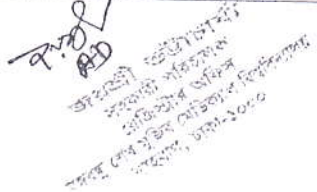 AD
জয়শ্রী
সহকারী পরিচালক
রেজিস্ট্রার অফিস
বঙ্গবন্ধু শেখ মুজিব মেডিক্যাল বিশ্ববিদ্যালয়
শাহবাগ, ঢাকা-১০০০